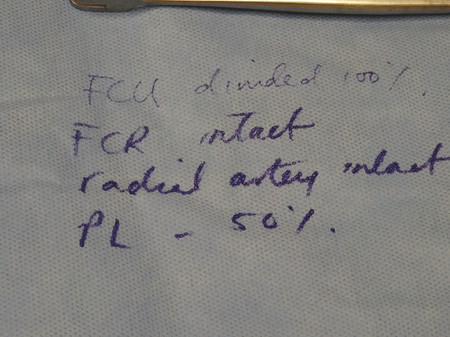 FCU divided 100%.
FCR intact
radial artery intact
PL - 50%.